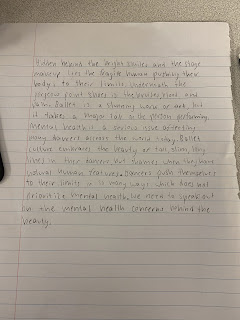 Hidden behind the bright smiles and the stage
makeup lies the fragile human pushing their
body to their limits. Underneath the
gorgeous point shoes is the bruises, blood, and
pain. Ballet is a stunning work of art but
it takes a major tole on the person performing.
Mental health is a serious issue affecting
many dancers across the world today. Ballet
culture embraces the beauty of tall, skinny, long
lines in their dancers but shames when they have
natural human features. Dancers push themselves
to their limits in many ways which does not
prioritize mental health. We need to speak out
on the mental health concerns behind the
beauty.